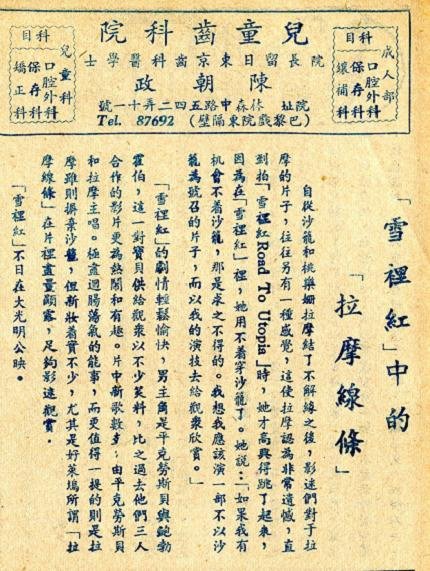 科目
成人部
口腔外科
保存科
鑲補科
兒童齒科院
院長留日東京齒科醫學士
陳朝政
院址 林森中路五四二弄十一號
Tel. 87692 (巴黎戲院東隔壁)
科目
兒童科
口腔外科
保存科
矯正科
「雪裡紅」中的
「拉摩線條」
自從沙籠和桃樂珊拉摩結了不解緣之後，影迷們對于拉
摩的片子，往往另有一種感覺，這使拉摩認為非常遺憾，直
到拍「雪裡紅Road To Utopia」時，她才高興得跳了起來，
因為在「雪裡紅」裡，她用不着穿沙籠了。她說：「如果我有
機會不着沙籠，那是求之不得的。我想我應該演一部不以沙
籠為號召的片子，而以我的演技去給觀衆欣賞。」
「雪裡紅」的劇情輕鬆愉快，男主角是平克勞斯貝與鮑勃
霍伯，這一對寶貝供給觀衆以不少笑料，比之過去他們三人
合作的影片更為熱鬧和有趣。片中新歌數多；由平克勞斯貝
和拉摩主唱。極盡迴腸蕩氣的能事，而更值得一提的則是拉
摩雖則摒棄沙籠，但新妝着實不少，尤其是好萊塢所謂「拉
摩線條」在片裡盡量顯露，足夠影迷觀賞．
「雪裡紅」不日在大光明公映。